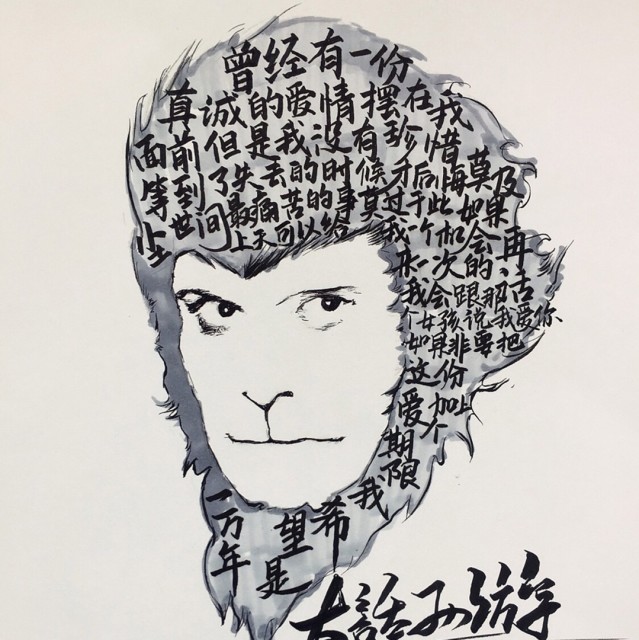 曾经有一份
真诚的爱情摆在我
面前但是我没有珍惜
等到了失去的时候才后悔莫及
尘世间最痛苦的事莫过于此如果
上天可以给我一个机会再
来一次的话
我会跟那
个女孩说我爱你
如果非要把
这份
爱加上个
期限
我希望是
一万年
大話